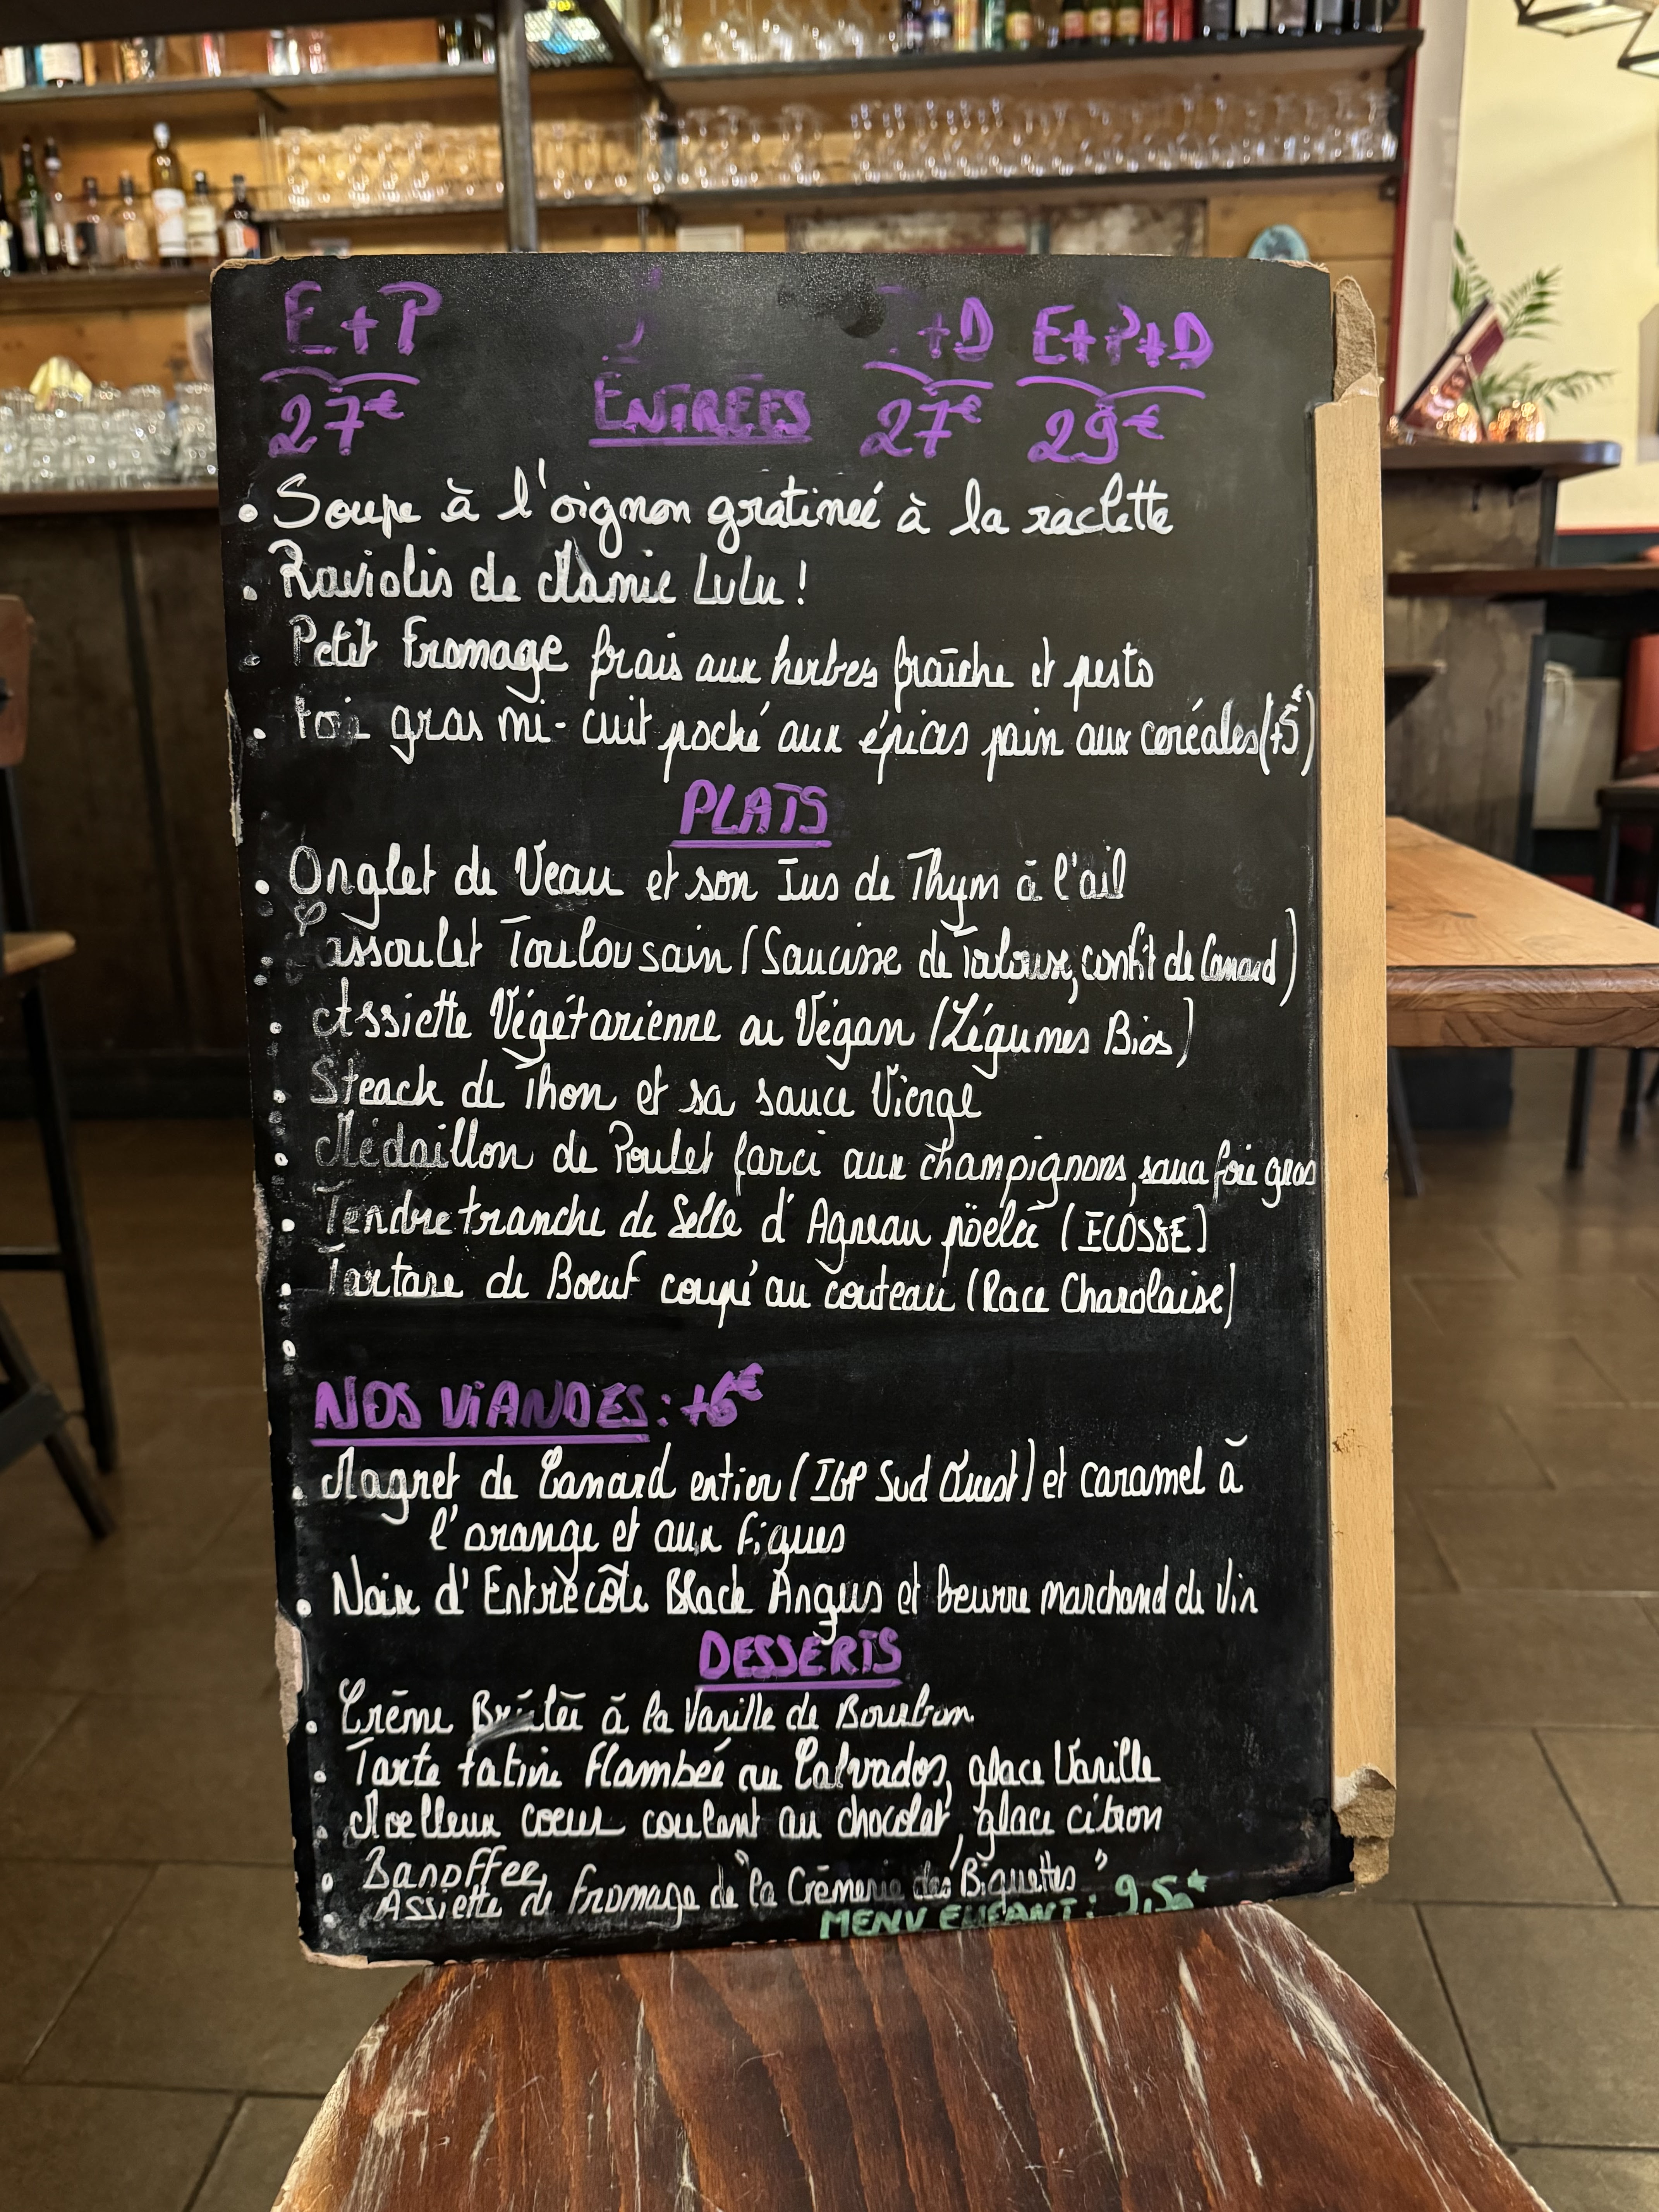 E+P +D E+P+D
27€ ENTRÉES 27€ 29€
• Soupe à l'oignon gratineé à la raclette
• Raviolis de Mamie Lulu !
• Petit Fromage frais aux herbes fraîche et pesto
• Foie gras mi-cuit poché aux épices pain aux ceréales (+5€)
PLATS
• Onglet de Veau et son Jus de Thym à l'ail
• Cassoulet Toulousain (Saucisse de Toulouse, confit de Canard)
• Assiette Végétarienne ou Végan (Légumes Bios)
• Steack de Thon et sa sauce Vierge
• Médaillon de Poulet farci aux champignons, sauce foie gras
• Tendre tranche de Selle d'Agneau pöelée (ECOSSE)
• Tartare de Boeuf coupé au couteau (Race Charolaise)
•
NOS VIANDES : +6€
• Magret de Canard entier (IGP Sud Ouest) et caramel à
l'orange et aux Figues
• Noix d'Entrecôte Black Angus et beurre marchand de Vin
DESSERTS
• Crème Brûlée à la Vanille de Bourbon
• Tarte tatin Flambée au Calvados, glace Vanille
• Moelleux coeur coulant au chocolat, glace citron
• Banoffee
• Assiette de Fromage de "la Crèmerie des Biquettes"
MENU ENFANT : 9,50€